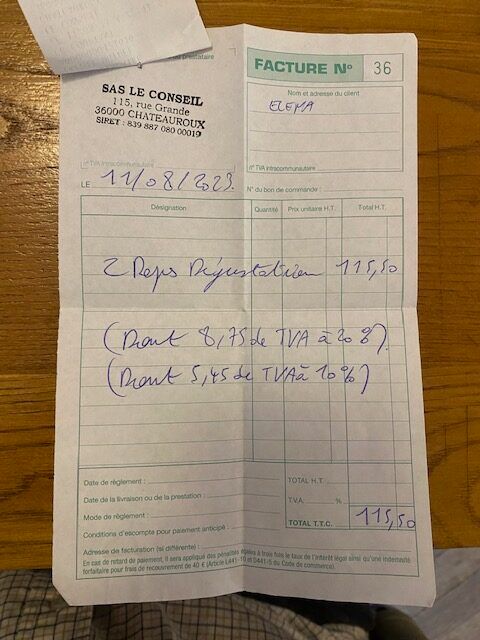 du prestataire
FACTURE N° 36
SAS LE CONSEIL
115, rue Grande
36000 CHATEAUROUX
SIRET : 839 887 080 00019
Nom et adresse du client
ELEMA
n° TVA intracommunautaire
n° TVA intracommunautaire
LE 11/08/2023.
N° du bon de commande :
Désignation Quantité Prix unitaire H.T. Total H.T.
2 Reps Dégustation 115,50
(Dont 8,75 de TVA à 20%).
(Dont 5,45 de TVA à 10%)
Date de règlement :
Date de la livraison ou de la prestation :
Mode de règlement :
Conditions d'escompte pour paiement anticipé :
Adresse de facturation (si différente) :
TOTAL H.T.
T.V.A. %
TOTAL T.T.C. 115,50
En cas de retard de paiement, il sera appliqué des pénalités égales à trois fois le taux de l'intérêt légal ainsi qu'une indemnité
forfaitaire pour frais de recouvrement de 40 € (Article L441-10 et D441-5 du Code de commerce).